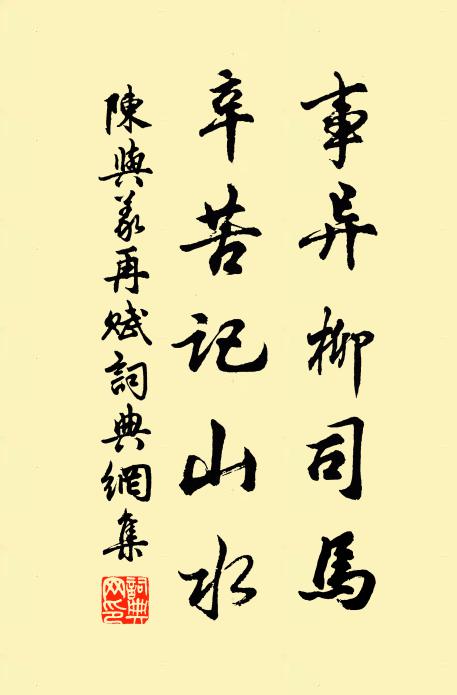 事异柳司馬
辛苦記山水
陳與義再賦詞典網集
詞典網印